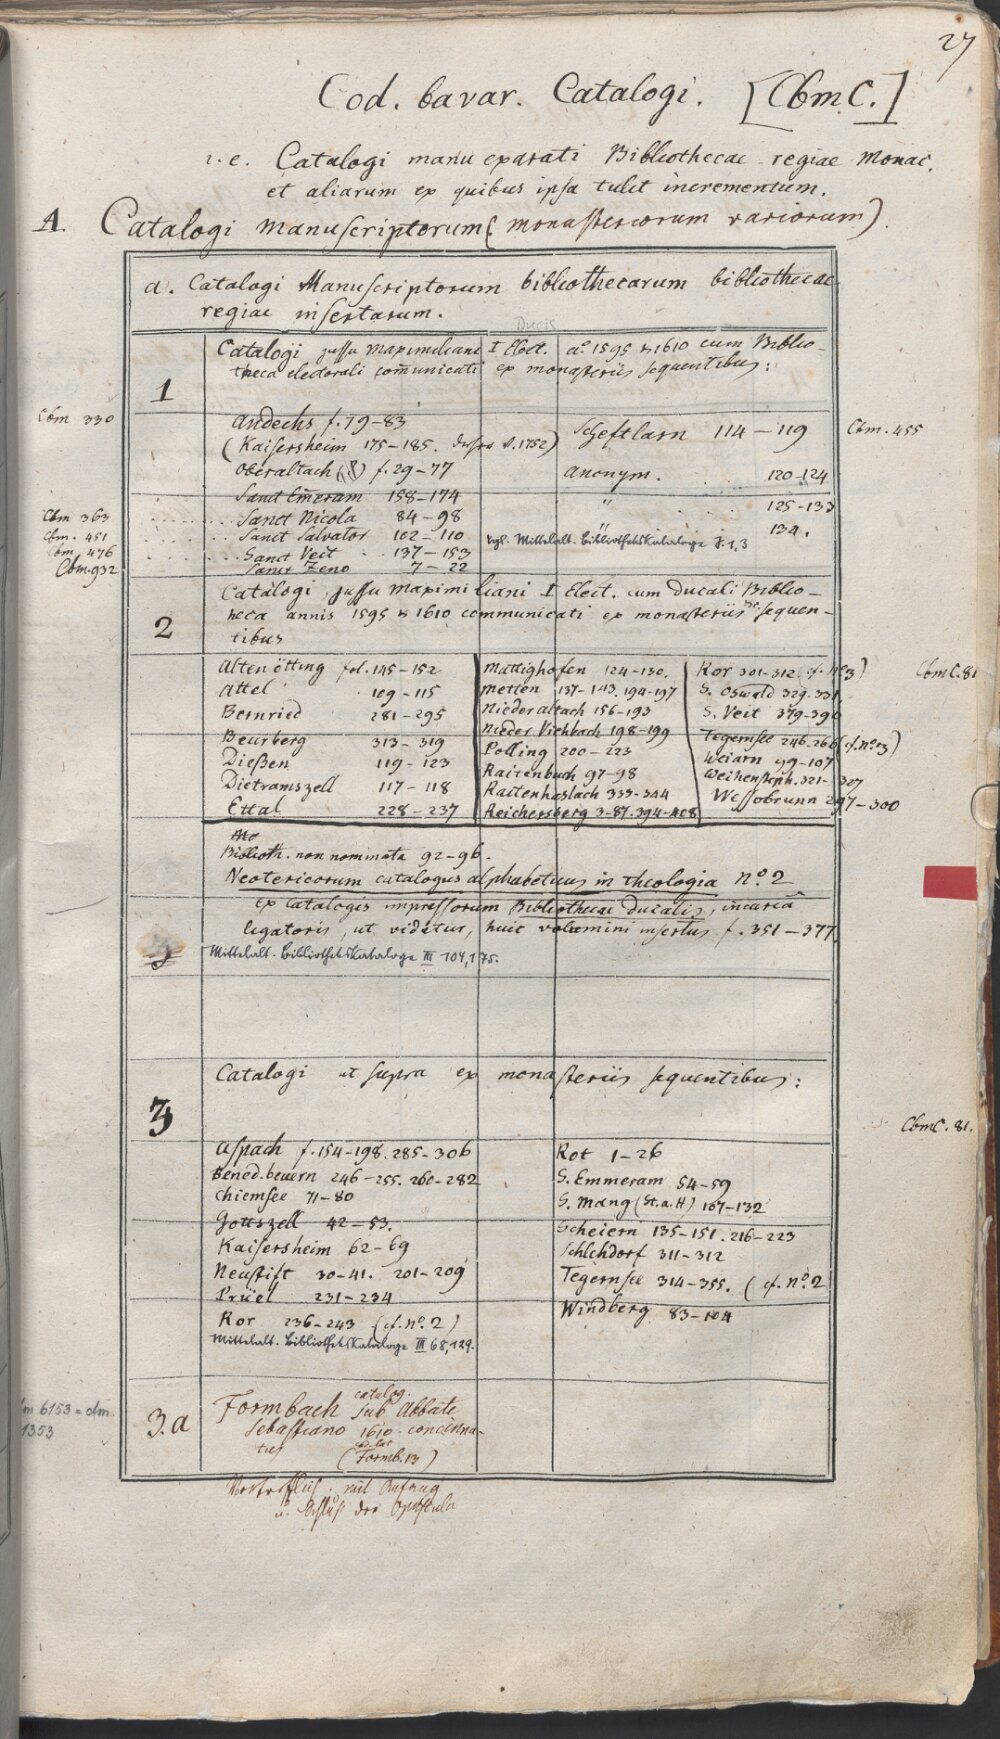 27
Cod. bavar. Catalogi. [Cbm C.]
i.e. Catalogi manu exarati Bibliothecae regiae Monac.
et aliarum ex quibus ipsa tulit incrementum.
A. Catalogi manuscriptorum (monasteriorum variorum).
a. Catalogi Manuscriptorum bibliothecarum bibliothecae
regiae insertarum.
Ducis
1
Catalogi jussu Maximiliani I Elect. aº 1595 & 1610 cum Biblio-
theca electorali communicati ex monasteriis sequentibus:
Cbm 330
Andechs f. 79-83
(Kaisersheim 175-185.
Oberaltach f. 29-77
Sanct Emeram 158-174
Cbm 363 Sanct Nicola 84-98
Cbm. 451 Sanct Salvator 102-110
Cbm. 476 Sanct Veit 137-153
Cbm. 932 Sanct Zeno 7-22
Scheftlarn 114-119 Cbm. 455
Anonym. 120-124
" 125-133
" 134.
vgl. Mittelalt. Bibliothekskataloge
2
Catalogi, jussu Maximiliani I Elect. cum Ducali Biblio-
heca annis 1595 & 1610 communicati ex monasteriis sequen-
tibus
Alten ötting fol. 145-152
Attel 109-115
Bernried 281-295
Beurberg 313-319
Dießen 119-123
Dietramszell 117-118
Ettal 228-237
Mattighofen 124-130.
Metten 137-143. 194-197
Nideraltach 156-193
Nieder Viehbach 198-199
Polling 200-223
Raitenbuch 97-98
Raitenhaslach 333-344
Reichersberg 3-87. 394-408
Ror 301-312 (cf. nº 3) CbmC. 81
S. Oswald 329. 331
S. Veit 379-390
Tegernsee 246-266 (cf. nº 3)
Weiarn 99-107
Weihensteph. 321-327
Wessobrunn 297-300
Biblioth. non nominata 92-96.
Neotericorum catalogus alphabeticus in theologia nº. 2
ex catalogis impressorum Bibliothecae Ducalis, incuria
ligatoris, ut videtur, huic volumini insertus f. 351-377
Mittelalt. Bibliothekskataloge III 104, 175.
3
Catalogi ut supra ex monasteriis sequentibus:
CbmC. 81.
Aspach f. 154-198. 285-306
Bened. beuern 246-255. 260-282
Chiemsee 71-80
Gottszell 42-53.
Kaisersheim 62-69
Neustift 30-41. 201-209
Prüel 231-234
Ror 236-243 (cf. nº. 2)
Mittelalt. Bibliothekskataloge III 68, 129.
Rot 1-26
S. Emmeram 54-59
S. Mang (St. a. H) 107-132
Scheiern 135-151. 216-223
Schlehdorf 311-312
Tegernsee 314-355. (cf. nº. 2
Windberg 83-104
3.a
catalog.
Formbach sub Abbate
Sebastiano 1610 concinna-
tus
cod. lat.
(Formb. 13)
m 6153 = clm.
1353
Vortrefflich, mit Anfang
u. Schluß der Opuscula